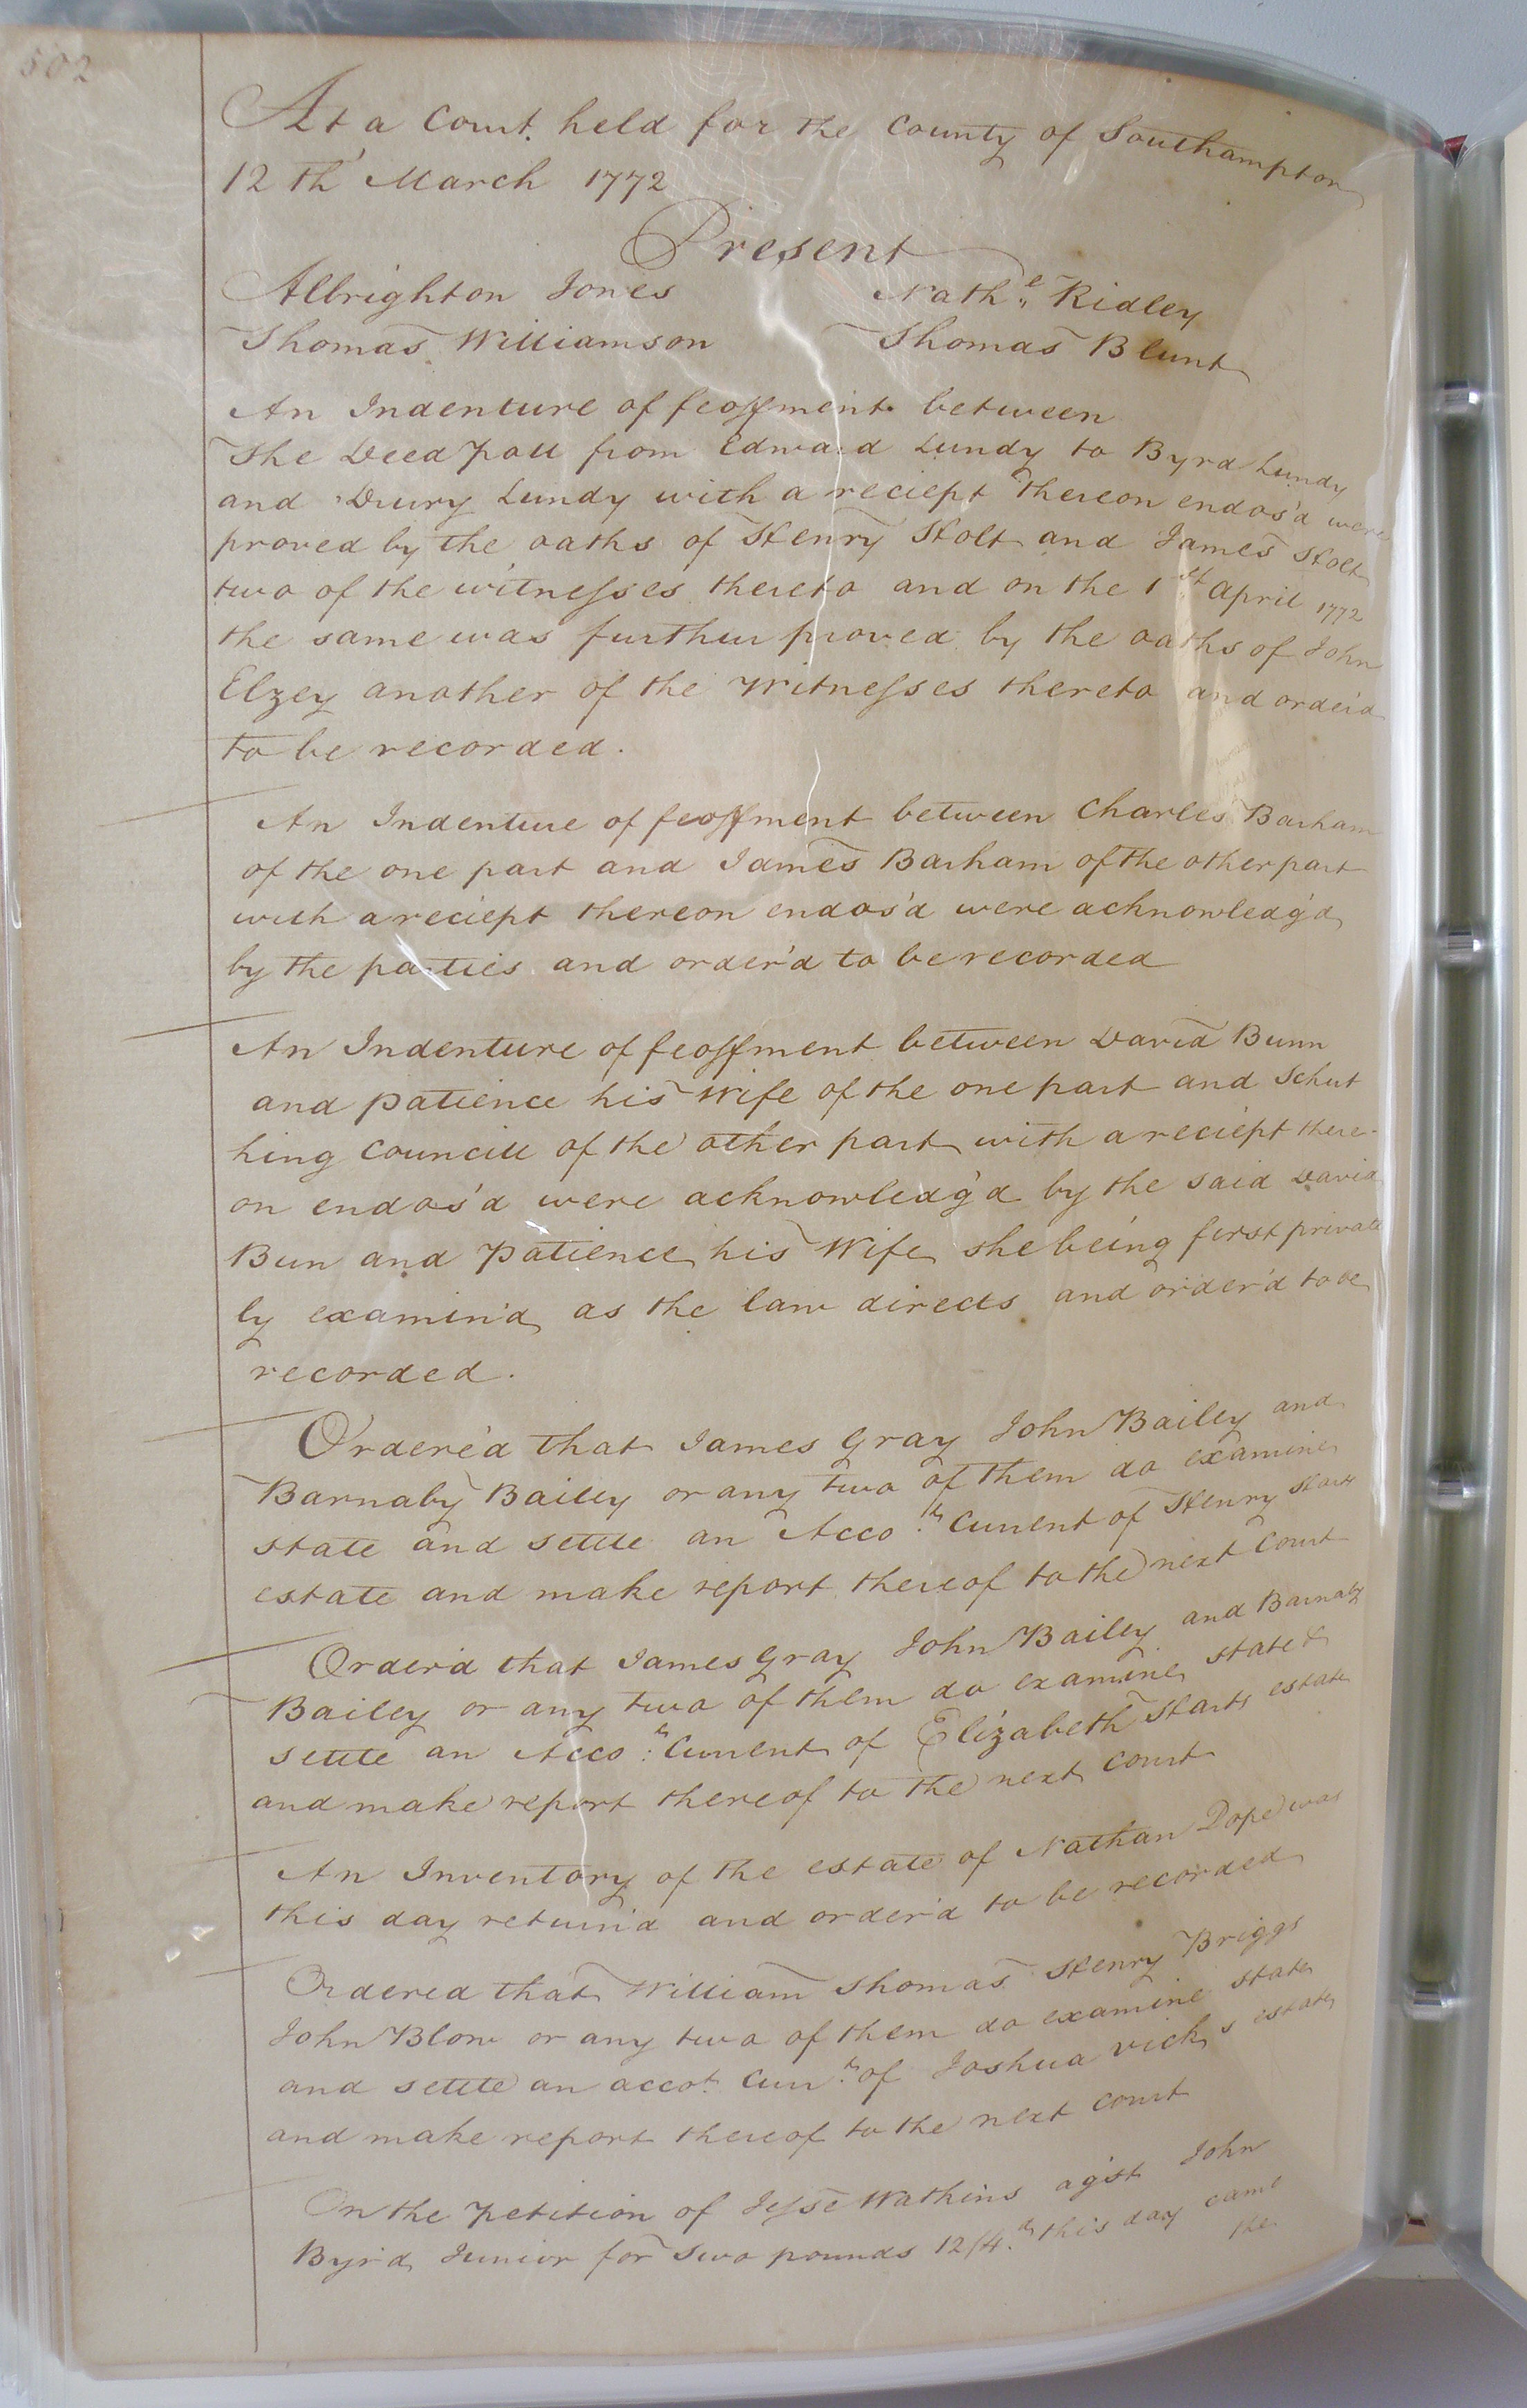 502
At a Court held for the County of Southampton
12th March 1772
Present
Albrighton Jones Nath.l Ridley
Thomas Williamson Thomas Blunt
An Indenture of feoffment between
The Deed Poll from Edward Lundy to Byrd Lundy
and Drury Lundy with a reciept thereon endos'd were
proved by the oaths of Henry Holt and James Holt
two of the witnesses thereto and on the 1st April 1772
the same was further proved by the oaths of John
Elzey another of the Witnesses thereto and order'd
to be recorded.
An Indenture of feoffment between Charles Barham
of the one part and James Barham of the other part
with a reciept thereon endos'd were acknowledg'd
by the parties and order'd to be recorded
An Indenture of feoffment between David Bunn
and Patience his Wife of the one part and Schut
hing Councill of the other part with a reciept there-
on endos'd were acknowledg'd by the said David
Bun and Patience his Wife she being first private
ly examin'd as the law directs and order'd to be
recorded.
Ordere'd that James Gray John Bailey and
Barnaby Bailey or any two of them do examine
state and settle an Acco.t Current of Henry
estate and make report thereof to the next Court
Order'd that James Gray John Bailey and Barnaby
Bailey or any two of them do examine state &
settle an Acco.t Current of Elizabeth estate
and make report thereof to the next Court
An Inventory of the estate of Nathan Pope was
this day return'd and order'd to be recorded
Ordered that William Thomas Henry Briggs
John Blow or any two of them do examine state
and settle an accot. Curr.t of Joshua Vick's estate
and make report thereof to the next Court
On the Petition of Jesse Watkins agst John
Byrd Junior for Two pounds 12/4.d this day came
the